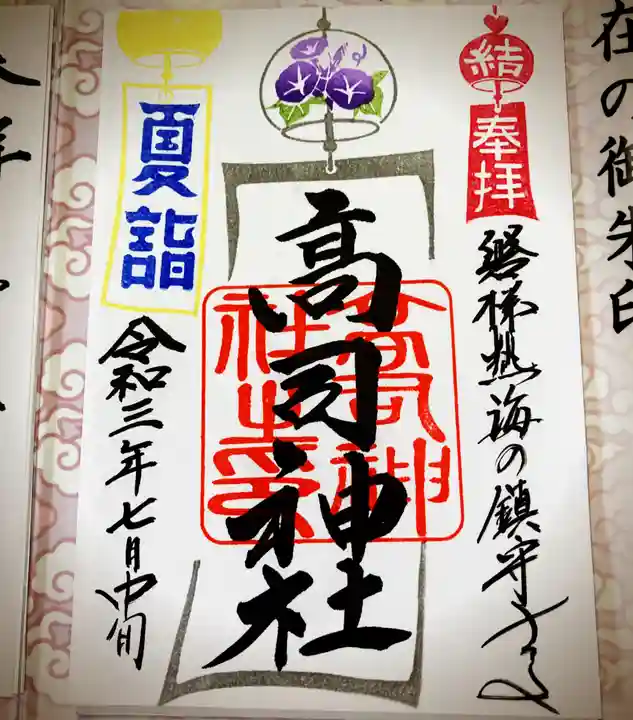 在の御朱印
結
奉拝
磐梯熱海の鎮守
高司神社
高司神社之印
夏詣
令和三年七月中旬